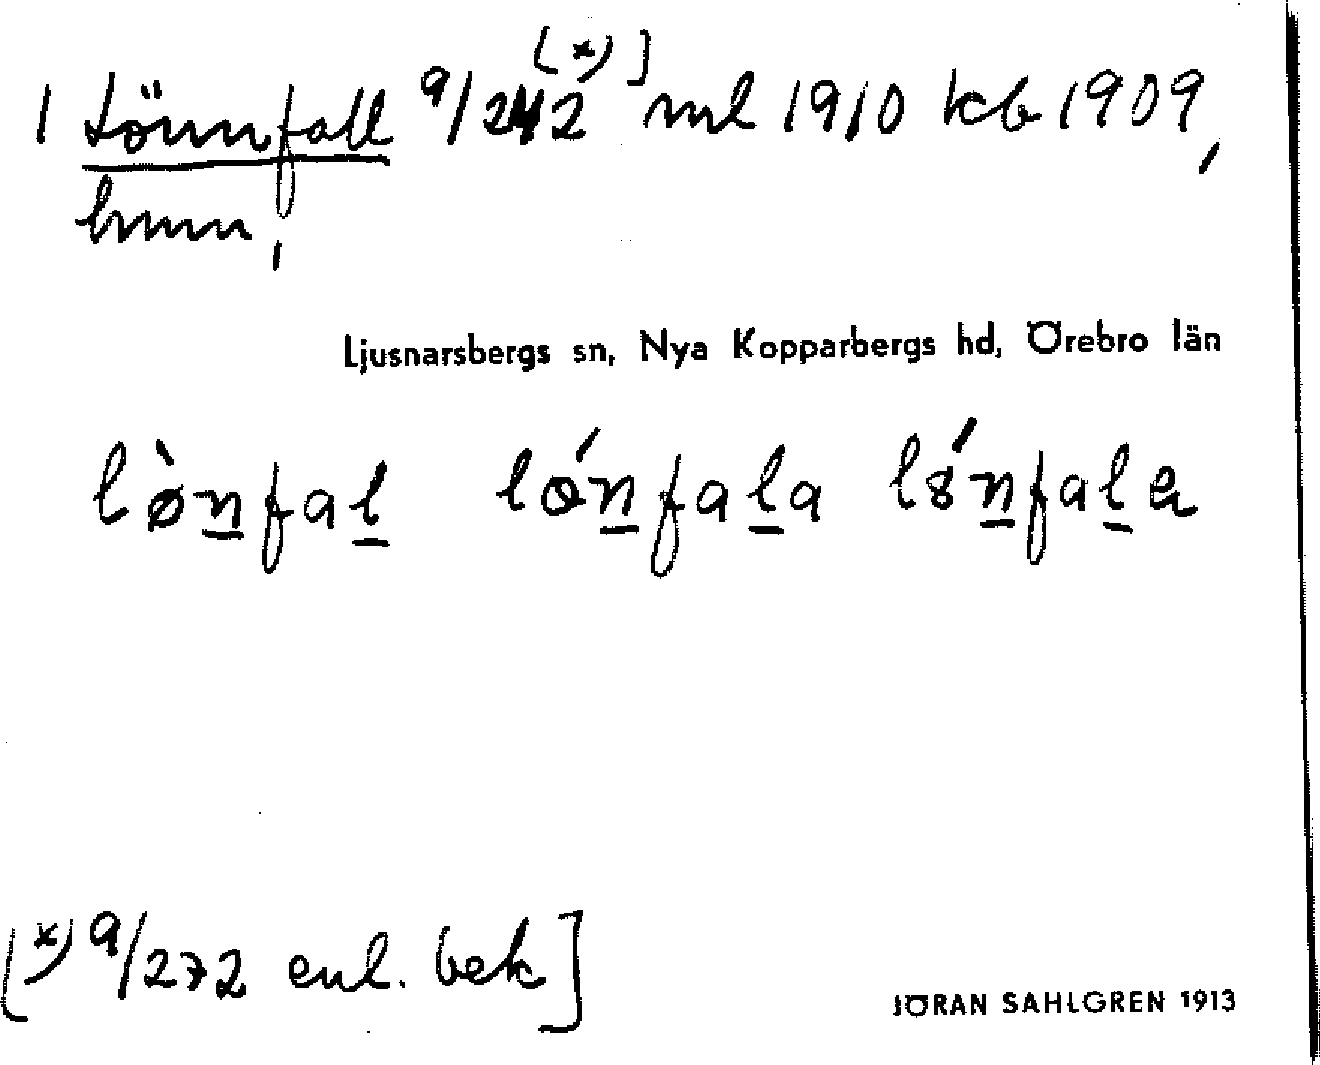 1 Lönnfall 9/242 [*)] ml 1910 kb 1909,
hmn,
Ljusnarsbergs sn, Nya Kopparbergs hd, Örebro län
lø̀n̲fal̲ ló̲n̲fal̲a lǿn̲fal̲a
[*) 9/272 enl. bek]
JÖRAN SAHLGREN 1913